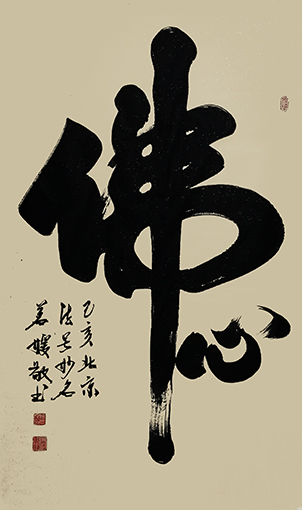 佛心
乙亥北京
法号妙名
若媛敬书